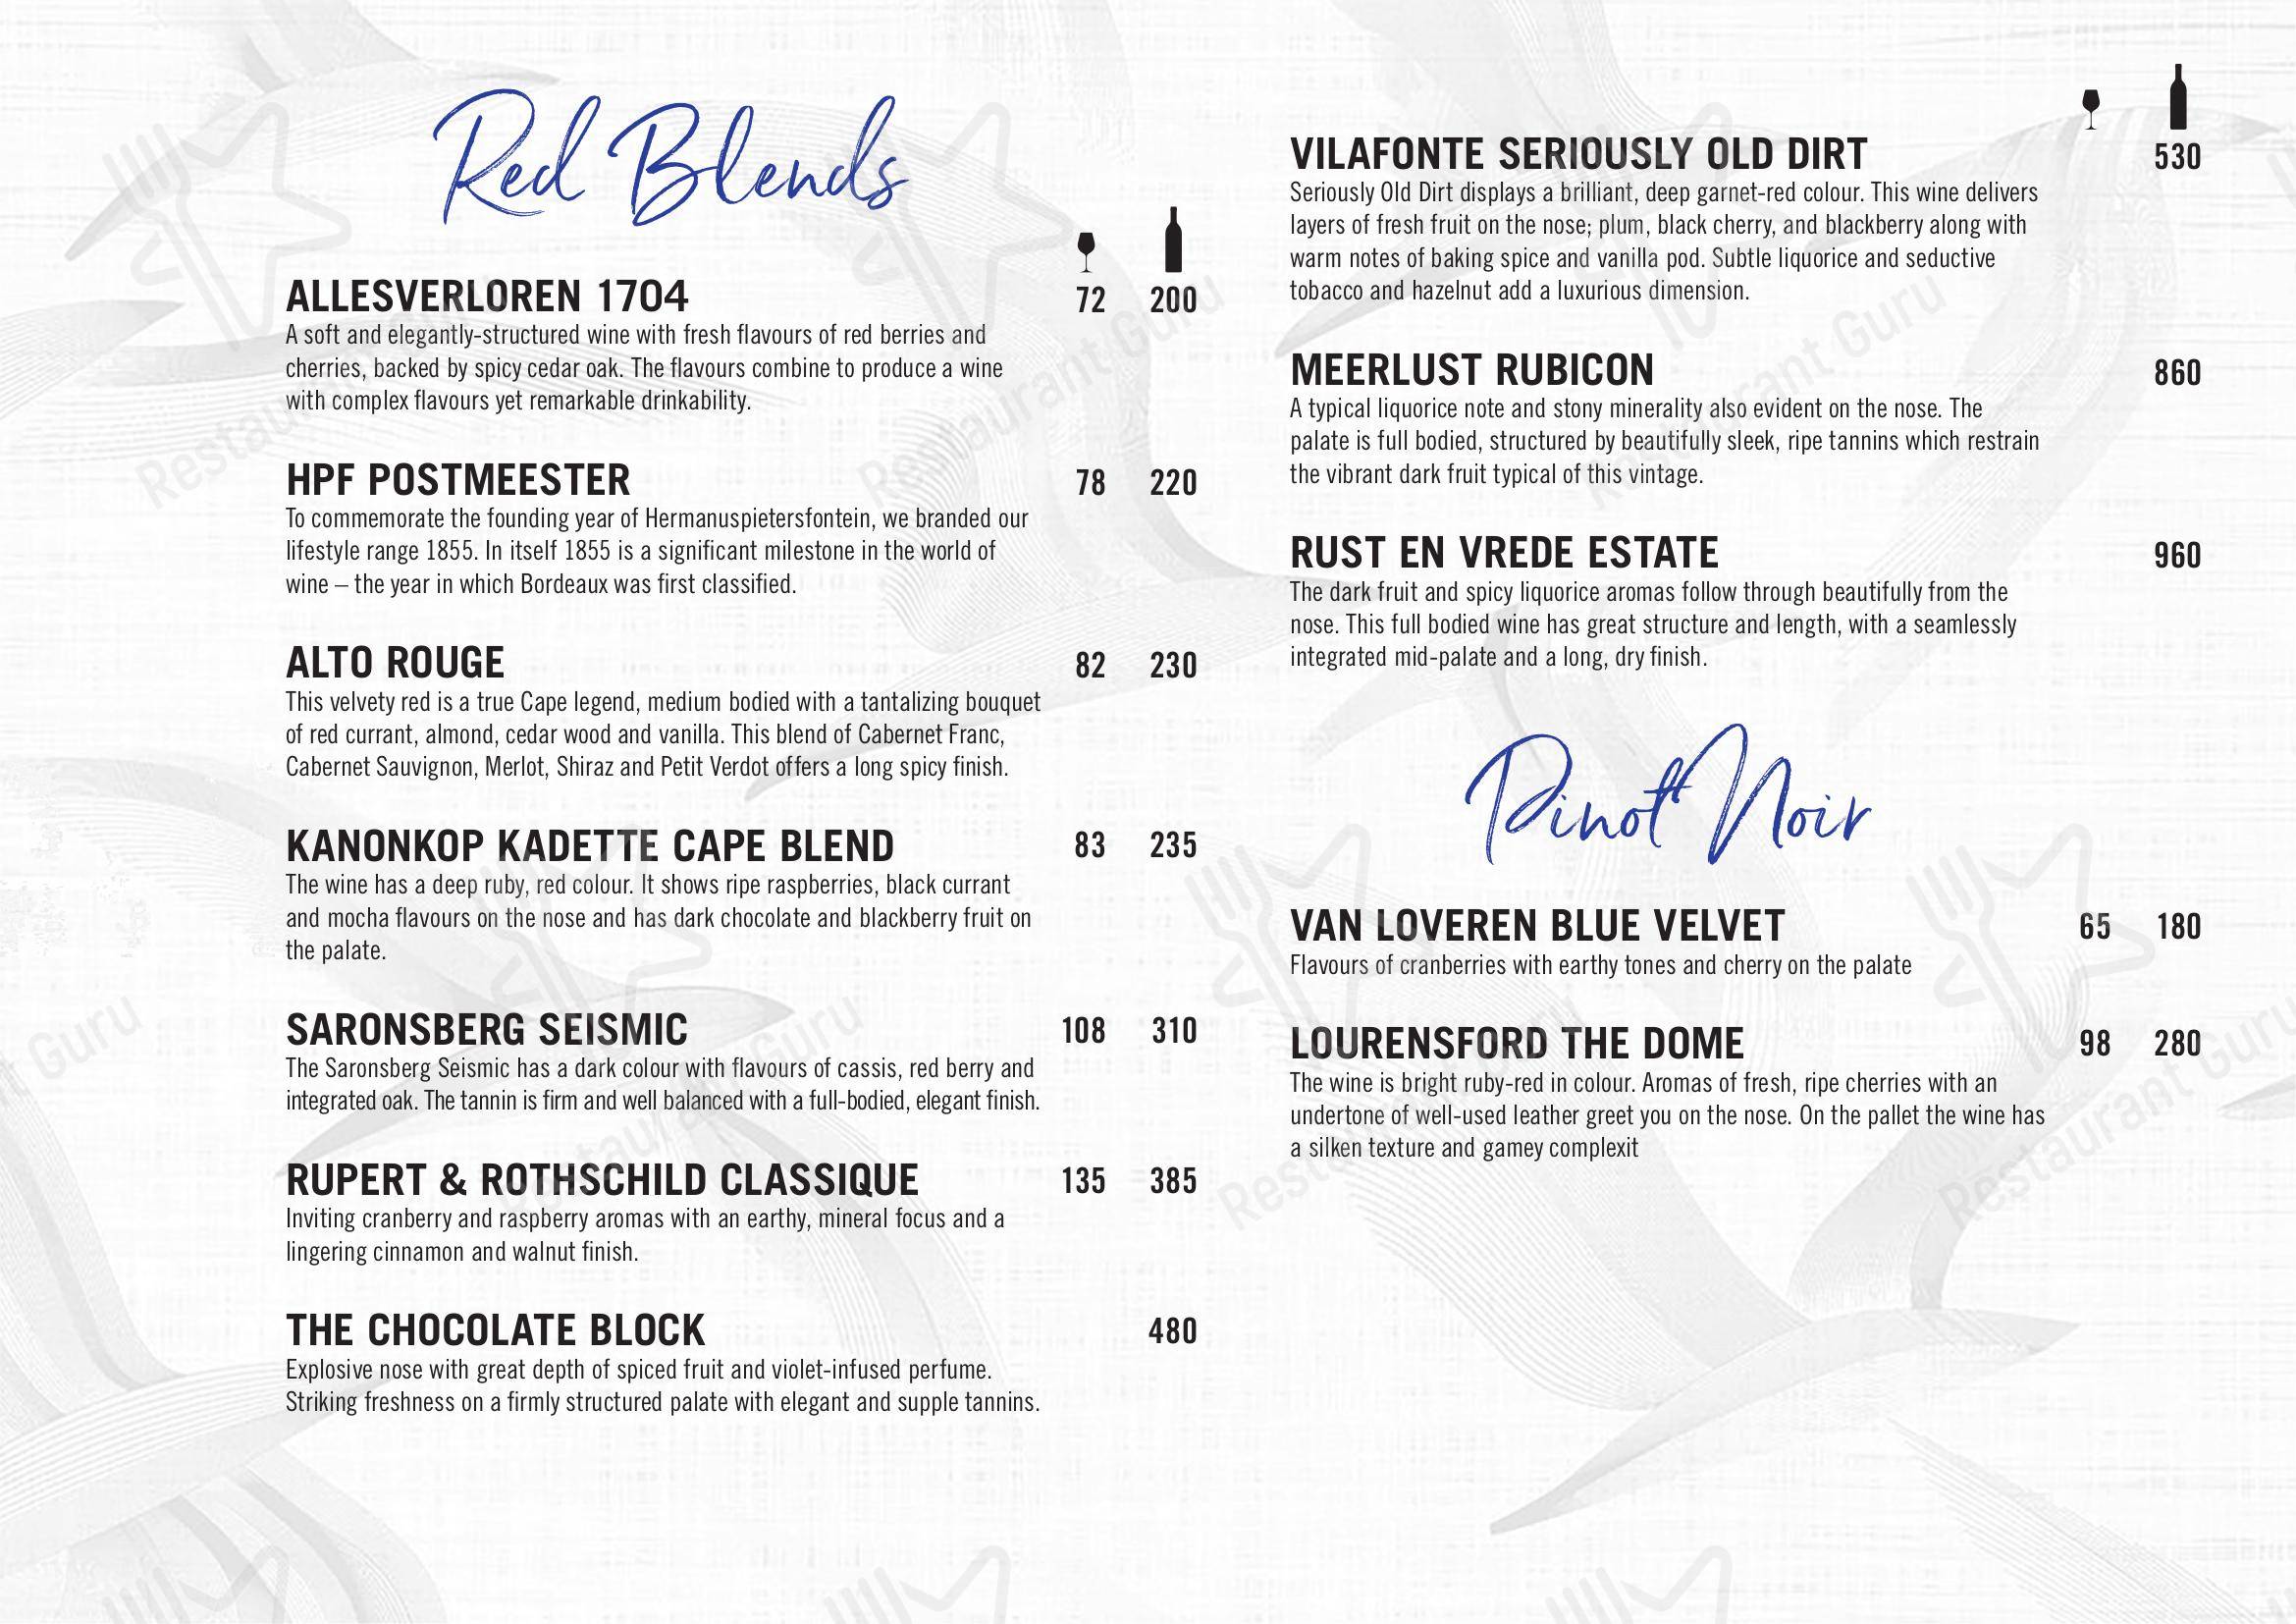 Red Blends
ALLESVERLOREN 1704 72 200
A soft and elegantly-structured wine with fresh flavours of red berries and
cherries, backed by spicy cedar oak. The flavours combine to produce a wine
with complex flavours yet remarkable drinkability.
HPF POSTMEESTER 78 220
To commemorate the founding year of Hermanuspietersfontein, we branded our
lifestyle range 1855. In itself 1855 is a significant milestone in the world of
wine – the year in which Bordeaux was first classified.
ALTO ROUGE 82 230
This velvety red is a true Cape legend, medium bodied with a tantalizing bouquet
of red currant, almond, cedar wood and vanilla. This blend of Cabernet Franc,
Cabernet Sauvignon, Merlot, Shiraz and Petit Verdot offers a long spicy finish.
KANONKOP KADETTE CAPE BLEND 83 235
The wine has a deep ruby, red colour. It shows ripe raspberries, black currant
and mocha flavours on the nose and has dark chocolate and blackberry fruit on
the palate.
SARONSBERG SEISMIC 108 310
The Saronsberg Seismic has a dark colour with flavours of cassis, red berry and
integrated oak. The tannin is firm and well balanced with a full-bodied, elegant finish.
RUPERT & ROTHSCHILD CLASSIQUE 135 385
Inviting cranberry and raspberry aromas with an earthy, mineral focus and a
lingering cinnamon and walnut finish.
THE CHOCOLATE BLOCK 480
Explosive nose with great depth of spiced fruit and violet-infused perfume.
Striking freshness on a firmly structured palate with elegant and supple tannins.
VILAFONTE SERIOUSLY OLD DIRT 530
Seriously Old Dirt displays a brilliant, deep garnet-red colour. This wine delivers
layers of fresh fruit on the nose; plum, black cherry, and blackberry along with
warm notes of baking spice and vanilla pod. Subtle liquorice and seductive
tobacco and hazelnut add a luxurious dimension.
MEERLUST RUBICON 860
A typical liquorice note and stony minerality also evident on the nose. The
palate is full bodied, structured by beautifully sleek, ripe tannins which restrain
the vibrant dark fruit typical of this vintage.
RUST EN VREDE ESTATE 960
The dark fruit and spicy liquorice aromas follow through beautifully from the
nose. This full bodied wine has great structure and length, with a seamlessly
integrated mid-palate and a long, dry finish.
Pinot Noir
VAN LOVEREN BLUE VELVET 65 180
Flavours of cranberries with earthy tones and cherry on the palate
LOURENSFORD THE DOME 98 280
The wine is bright ruby-red in colour. Aromas of fresh, ripe cherries with an
undertone of well-used leather greet you on the nose. On the pallet the wine has
a silken texture and gamey complexit
Restaurant Guru
Restaurant Guru
Restaurant Guru
t Guru
Restaurant Guru
Restaurant Guru
Restaurant Guru